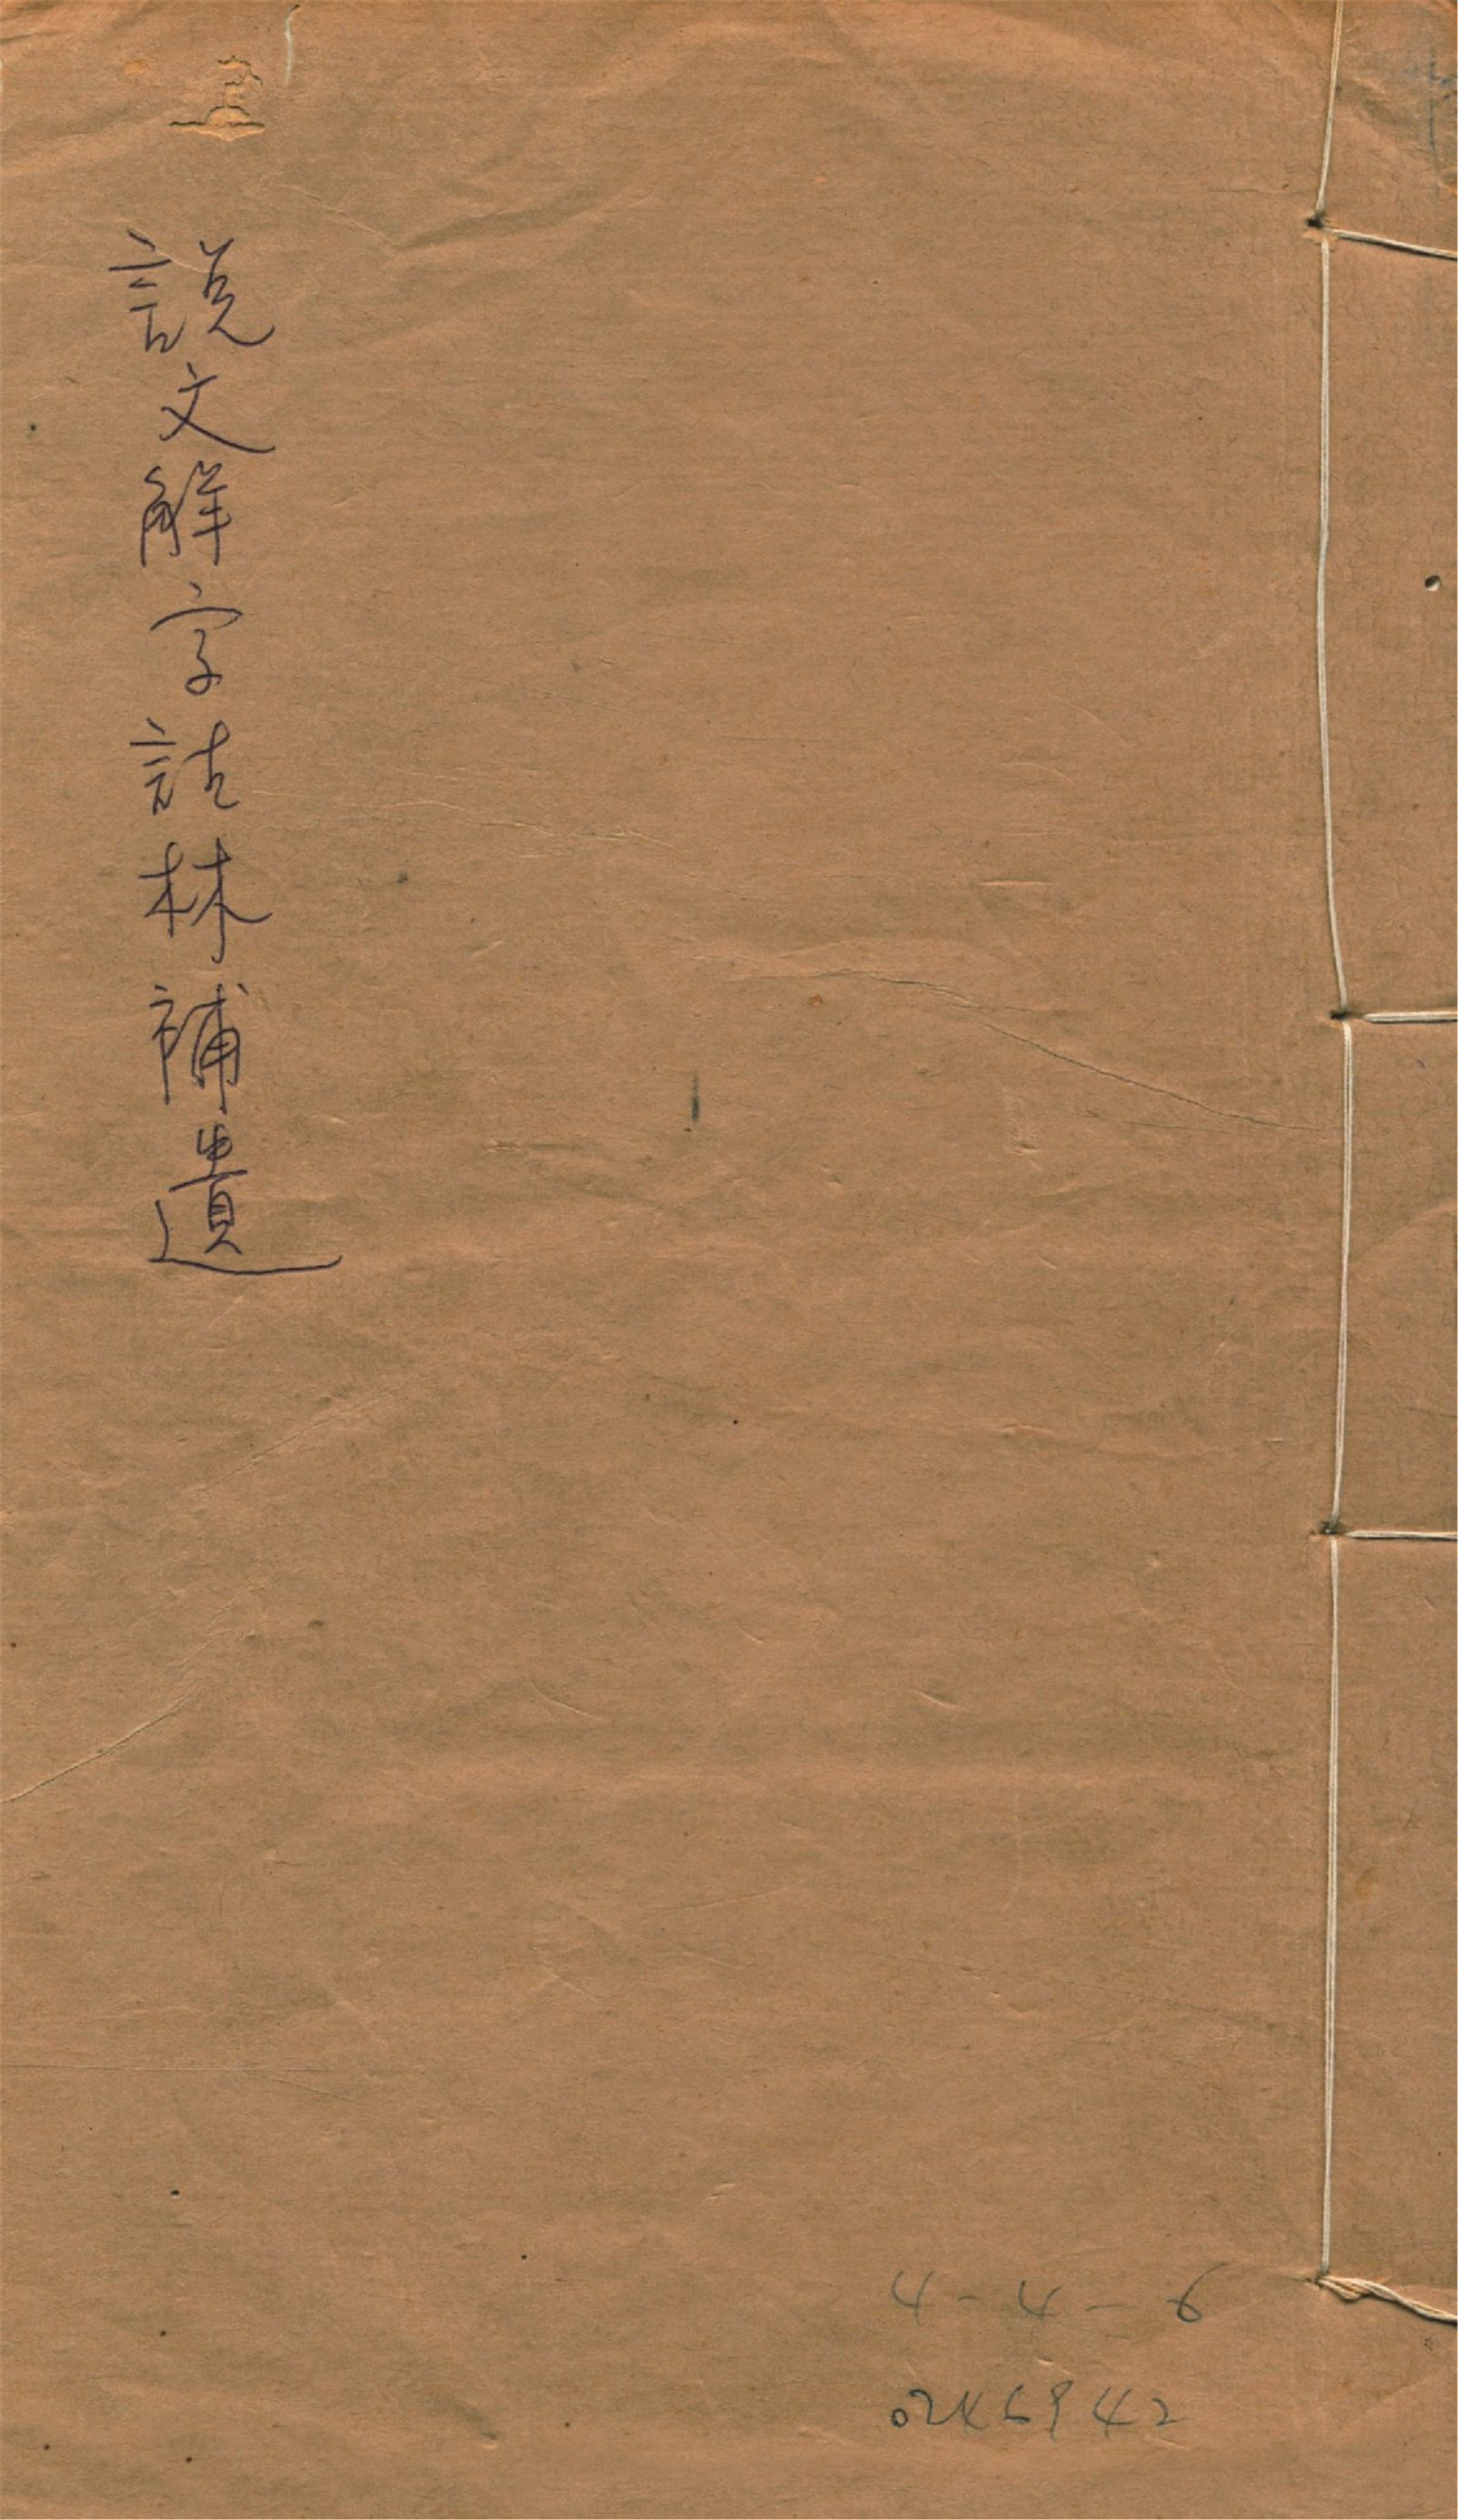 說文解字詁林補遺
4-4-6
0246942